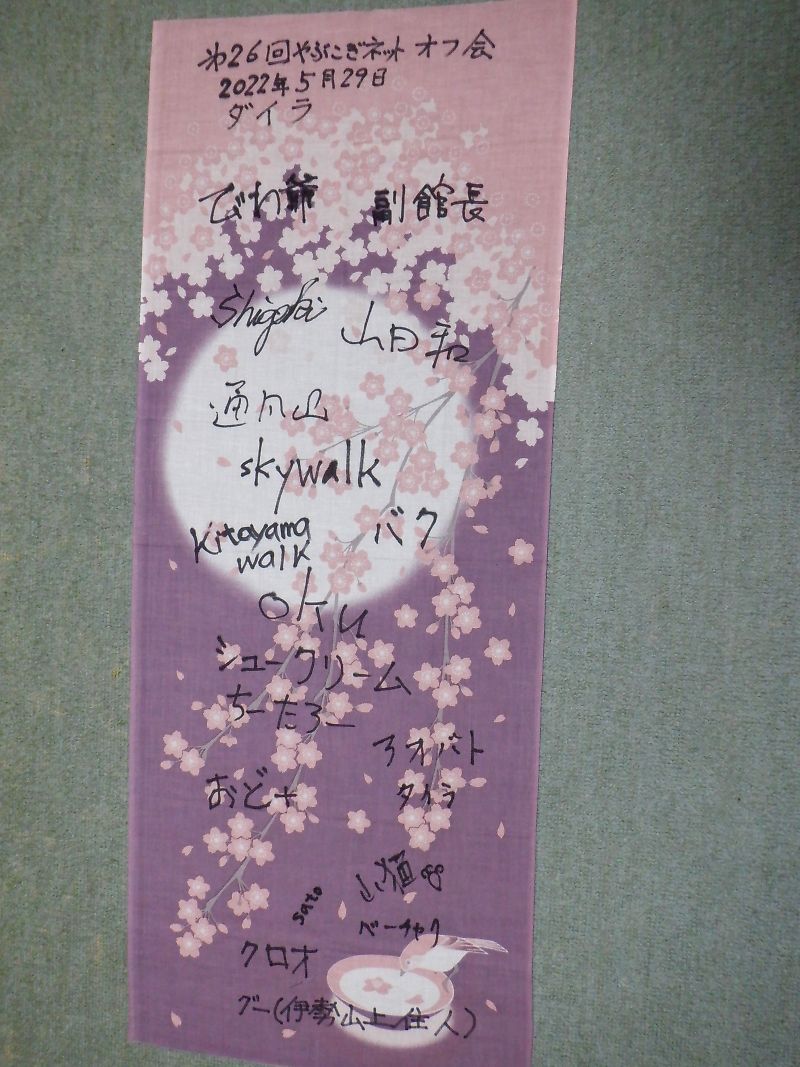 㐧26回やぶこぎネットオフ会
2022年5月29日
ダイラ
びわ爺 副館長
Shigeki 山日和
通風山
skywalk
kitayama walk バク
oku
シュークリーム
ちーたろー
アオバト
おど+ タイラ
山猫
sato
ベーチャク
クロオ
グー(伊勢山上住人)